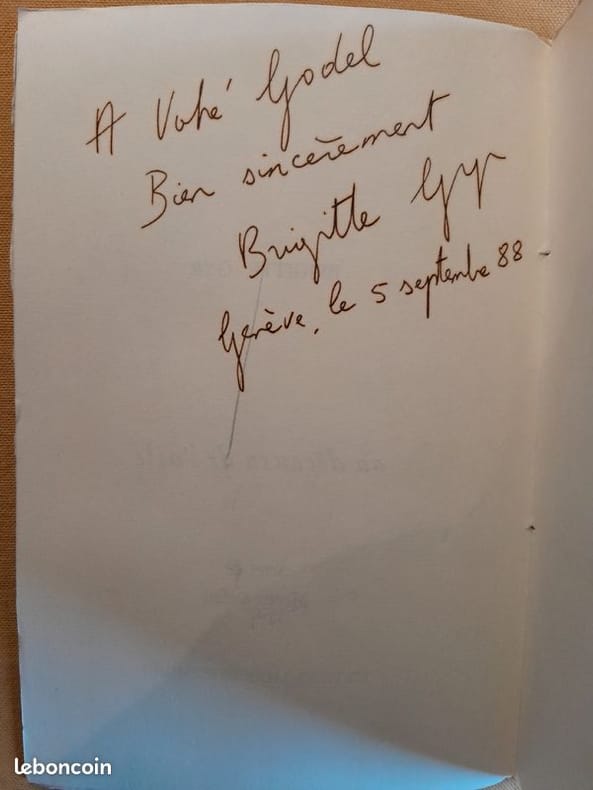 A Vahé Godel
Bien sincèrement
Brigitte Gyr
Genève, le 5 septembre 88
leboncoin